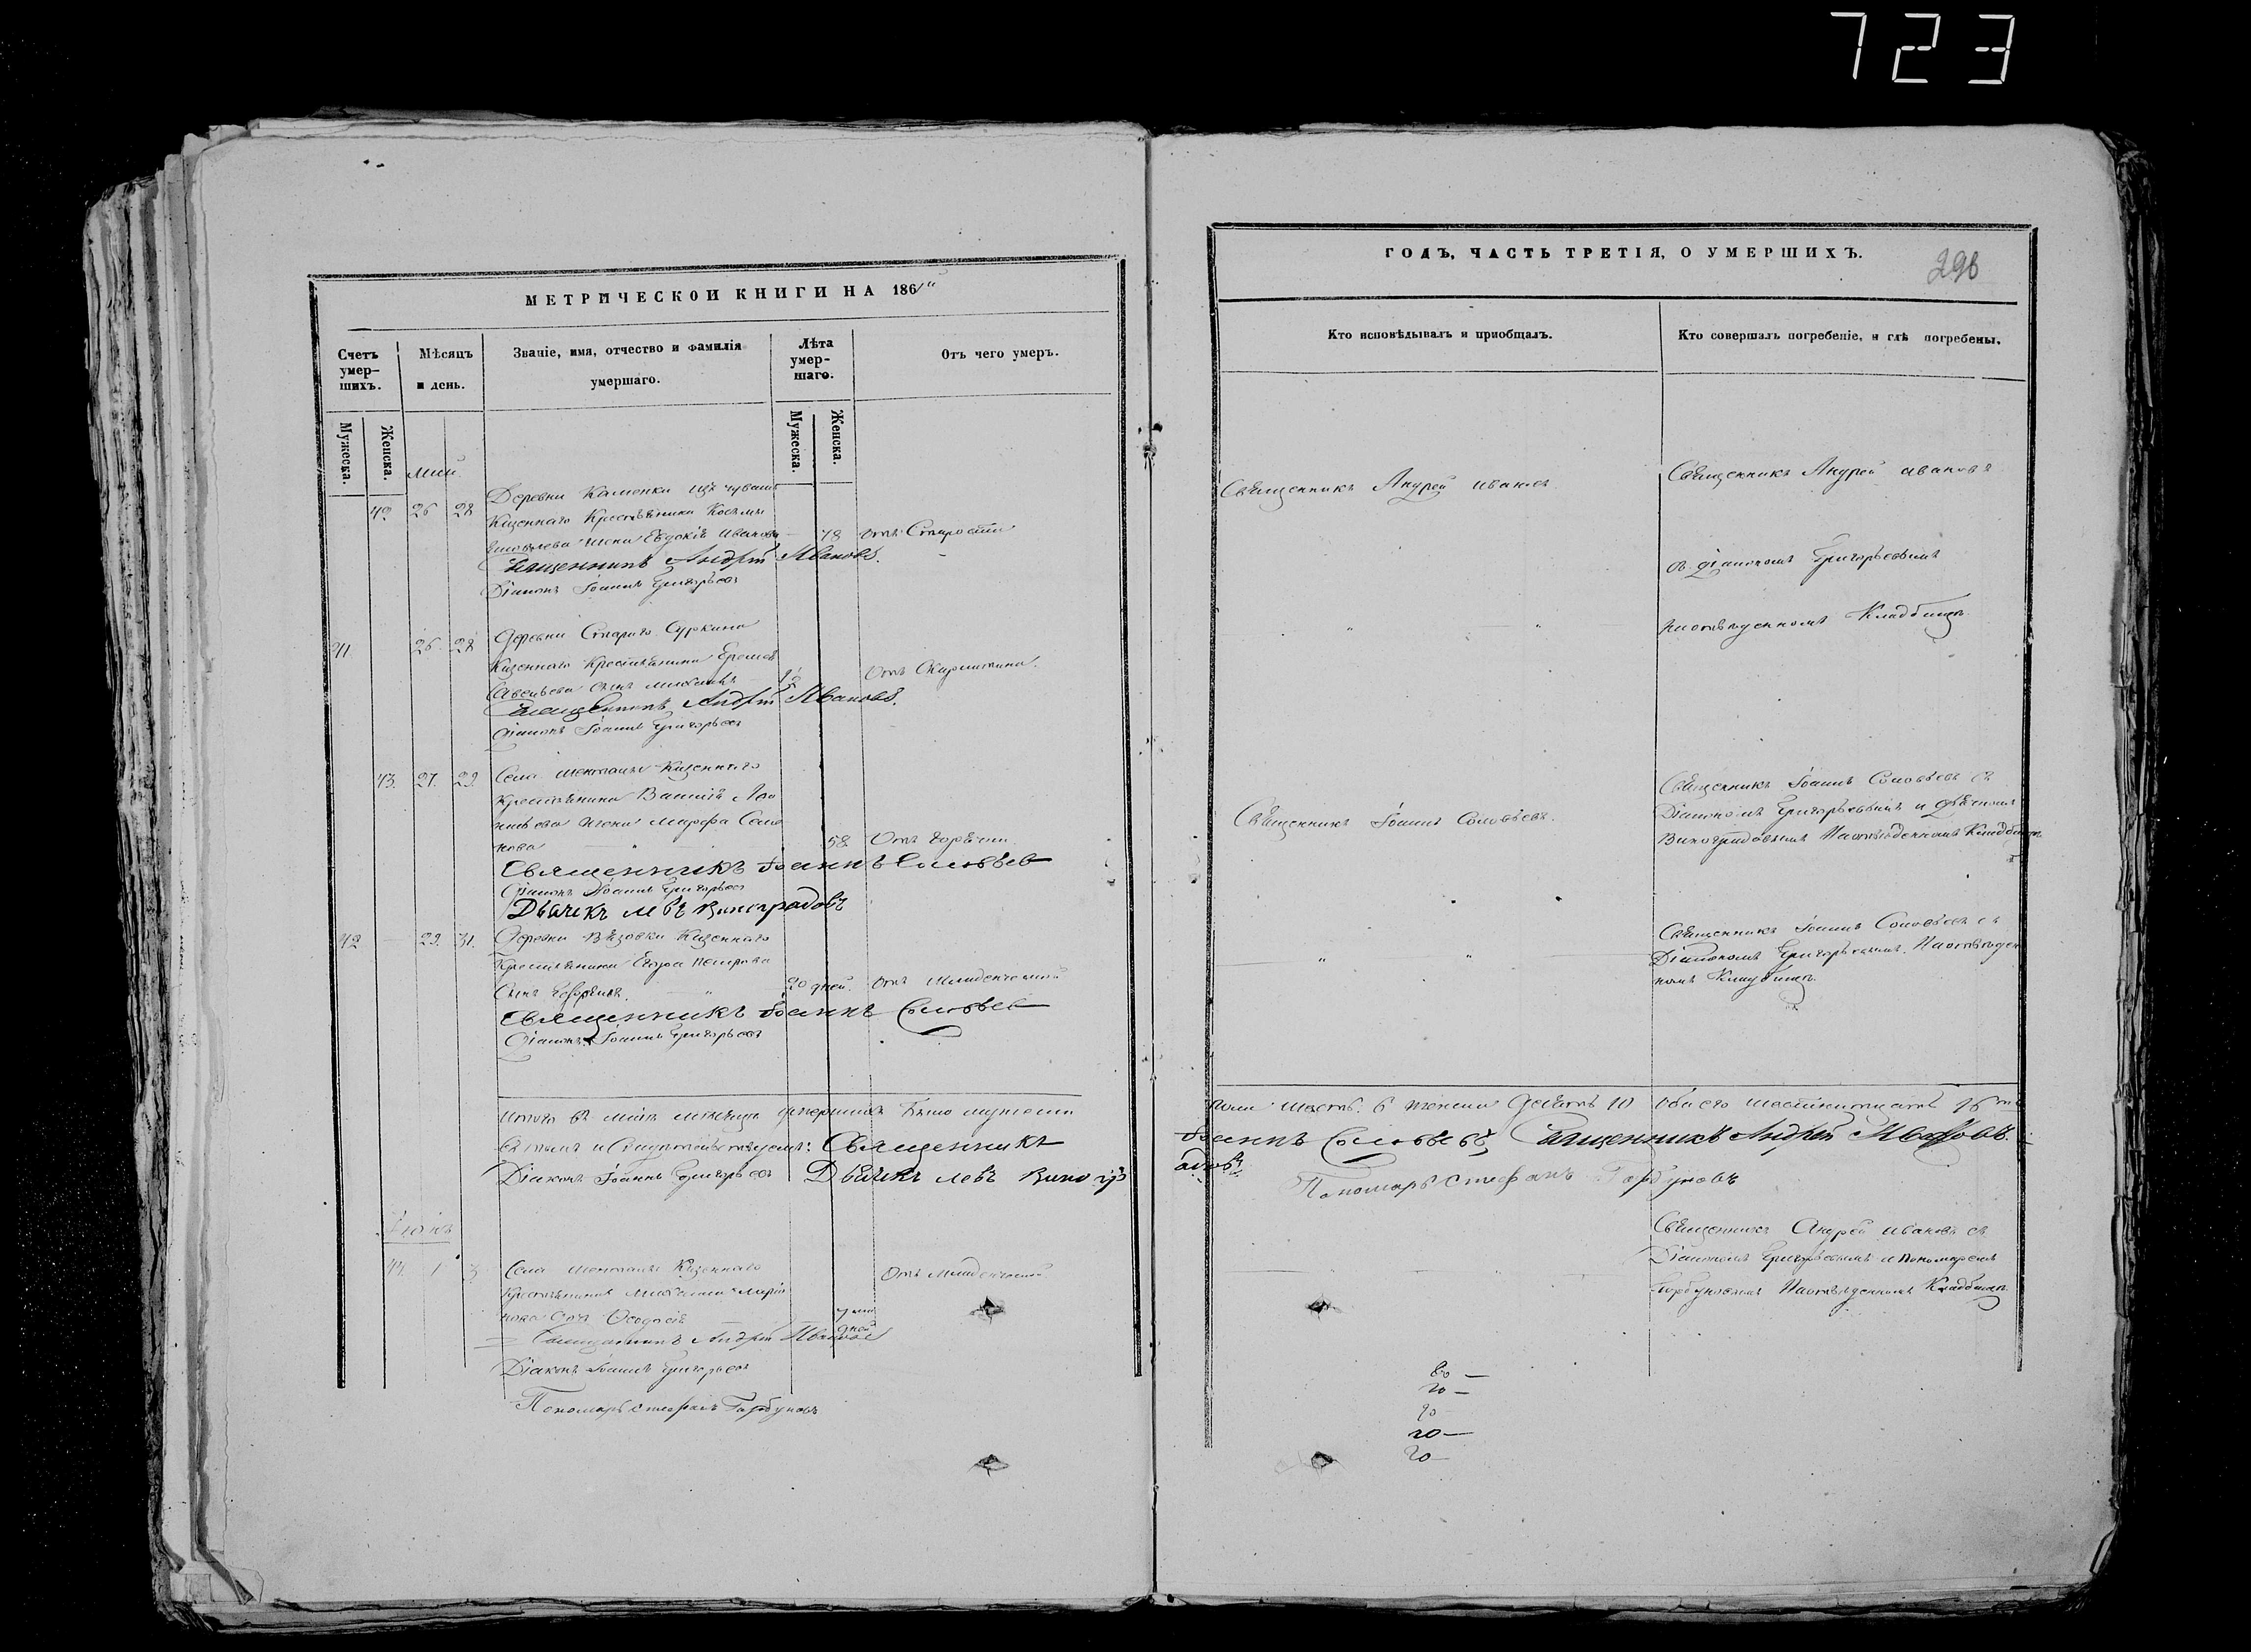 723
МЕТРИЧЕСКОЙ КНИГИ НА 1861
Счетъ умер-
шихъ.
Мѣсяцъ
и день.
Званіе, имя, отчество и фамилія
умершаго.
Лѣта
умер-
шаго.
Отъ чего умеръ.
Мужеска.
Женска.
Мужеска.
Женска.
Май
42 26 28 Деревни Каменки изъ чувашъ
Казеннаго Крестьянина Косьмы
жена Евдокія Иванова 78 отъ Старости
Священникъ Андрей Ивановъ.
Діаконъ Іоаннъ Григорьевъ
41 26 28 Деревни Стараго Суркина
Казеннаго Крестьянина Еремея
Савельева сынъ
Священникъ Андрей Ивановъ.
Діаконъ Іоаннъ Григорьевъ
43. 27. 29. Села Шентала Казеннаго
Крестьянина Василія
жена Марфа Семе
нова 58 Отъ Горячки
Священникъ Іоаннъ Соловьевъ
Діаконъ Іоаннъ Григорьевъ
Дьячекъ Левъ Виноградовъ
42 29. 31. Деревни Вязовки Казеннаго
Крестьянина Егора Петрова
Сынъ 20 дней. отъ Младенческой
Священникъ Іоаннъ Соловьевъ
Діаконъ Іоаннъ Григорьевъ
Итого въ Маѣ мѣсяцѣ умершихъ было мужеска
въ томъ и Свидѣтельствуемъ: Священникъ
Діаконъ Іоаннъ Григорьевъ Дьячекъ Левъ Виногр
Іюнь
44. 1 3 Села Шентала Казеннаго Отъ Младенческой
Крестьянина
нова Ѳеодосія дней
Священникъ Андрей Ивановъ
Діаконъ Іоаннъ Григорьевъ
Пономарь Стефанъ Горбуновъ
ГОДЪ, ЧАСТЬ ТРЕТІЯ, О УМЕРШИХЪ.
296
Кто исповѣдывалъ и пріобщалъ.
Кто совершалъ погребеніе, и гдѣ погребены.
Священникъ Андрей Ивановъ
Священникъ Андрей Ивановъ
съ діакономъ Григорьевымъ
на отведенномъ Кладбищѣ
Священникъ Іоаннъ Соловьевъ.
Священникъ Іоаннъ Соловьевъ съ
Діакономъ Григорьевымъ и дьячкомъ
Виноградовымъ На отведенномъ Кладбищѣ
Священникъ Іоаннъ Соловьевъ съ
Діакономъ Григорьевымъ. На отведен
номъ Кладбищѣ.
пола шесть. 6 женска десять 10 обоего шестнадцать 16
Іоаннъ Соловьевъ Священникъ Андрей Ивановъ.
адовъ
Пономарь Стефанъ Горбуновъ
Священникъ Андрей Ивановъ съ
Діакономъ Григорьевымъ и пономаремъ
Горбуновымъ На отведенномъ Кладбищѣ.
80 —
20 —
20
20 —
20 —